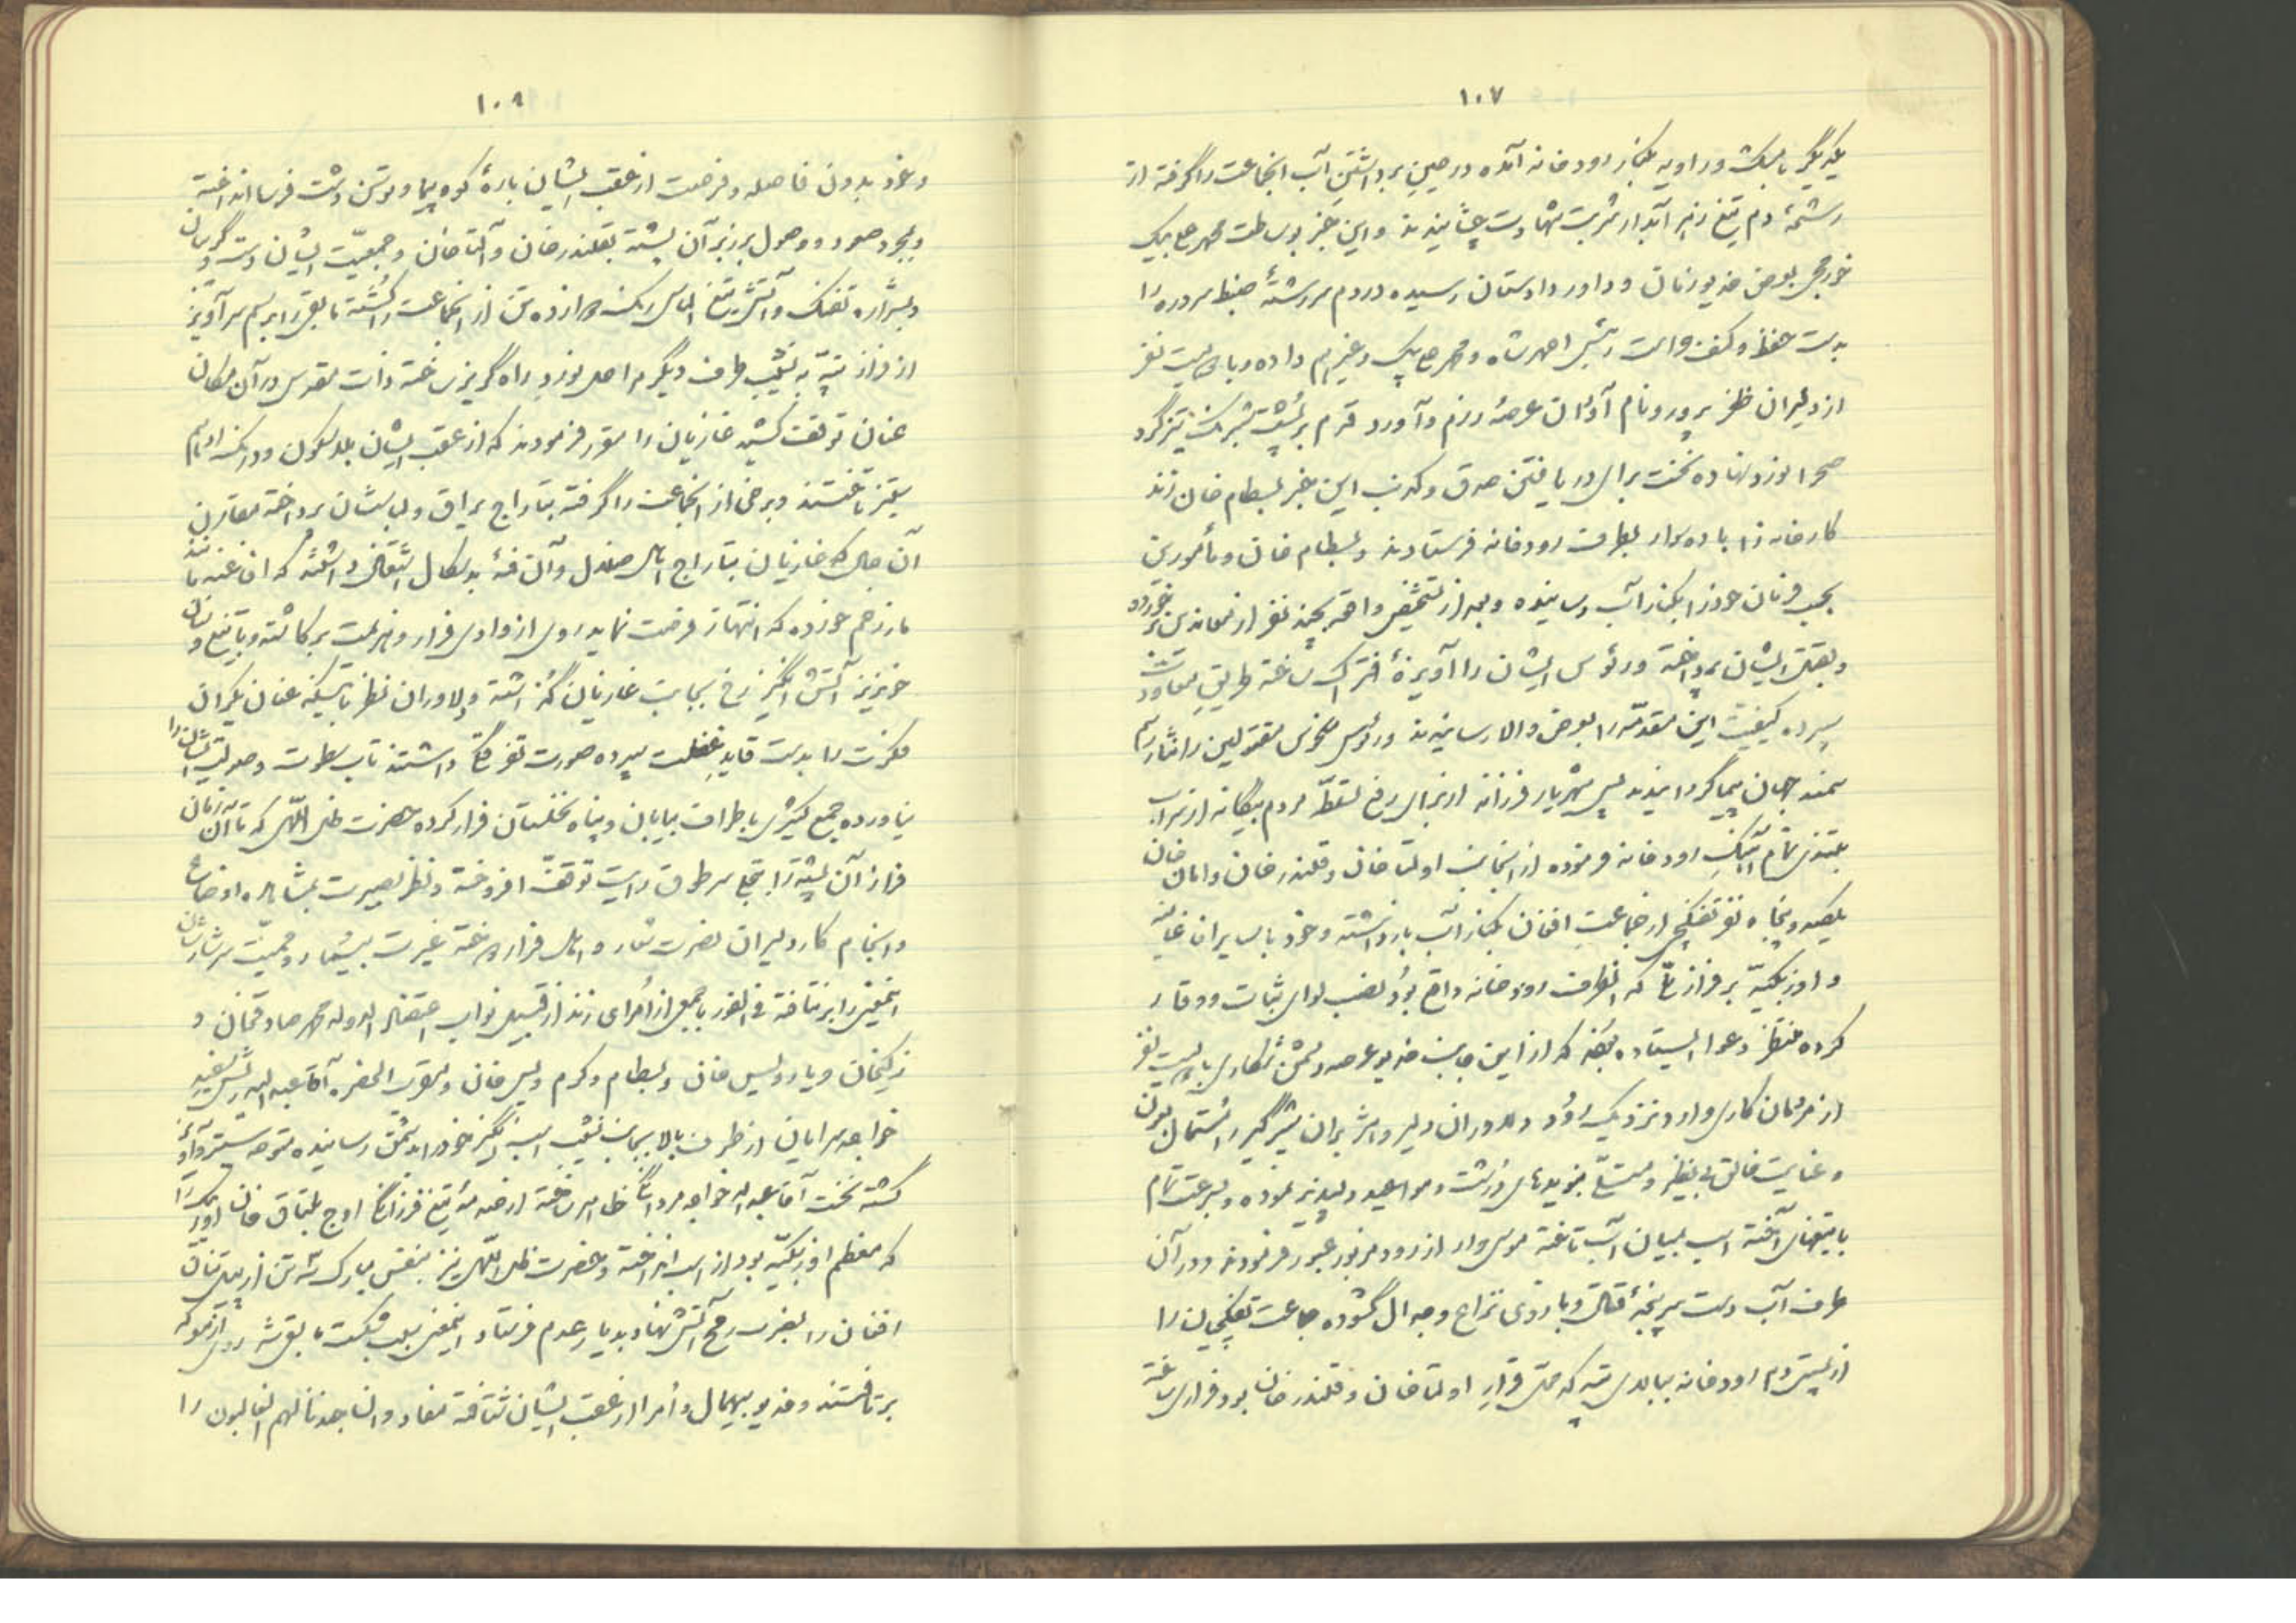 ۱۰۷
یکدیگر با مشک و راویه بکنار رودخانه آمده در حین برداشتن آب آنجماعت را گرفته از
رشحهٔ دم تیغ زهر آبدار شربت شهادت چشانیدند و این خبر بوساطت محمد صالح بیک
بعرض خدیو زمان و داور داوستان رسیده در دم سررشتهٔ ضبط را
بدست حفظ و احمد شاه و محمد صالح بیک و غیرهم داده و با بیست نفر
از دلیران ظفر پرور و نام آوران عرصهٔ رزم و آورد قدم بر پشت تیزگرد
صحرا نورد نهاده نخست برای دریافتن صدق و کذب این خبر بسطام خان زند
کارخانه را با ده سوار بطرف رودخانه فرستادند و بسطام خان و مأمورین
بحسب فرمان خود را بکنار آب رسانیده و بعد از تشخیص واقعه بچند نفر از معاندین برخورده
و بقتل ایشان پرداخته و رؤس ایشان را آویزهٔ فتراک ساخته طریق معاودت
سپرده کیفیت این مقدمه را بعرض والا رسانیدند و رؤس منحوس مقتولین را نثار سم
سمند جهان پیما گردانیدند پس شهریار فرزانه از برای رفع تسلط مردم بیگانه از سر آب
بتندی تمام آهنگ رودخانه فرموده از آنجانب اولتا خان و قلندر خان و امان خان
یکصد و پنجاه نفر تفنگچی از جماعت افغان بکنار آب بازداشته و خود با سایر افاغنه
و اوزبکیه بر فراز تلی که آنطرف رودخانه واقع بود نصب لوای ثبات و وقار
کرده منتظر دعوا ایستاده بودند که از این جانب خدیو عرصه دشمن شکاری با بیست نفر
از مردمان کاری وارد نزدیک رود و دلاوران دلیر و هژبران شیرگیر را
و عنایت خالق بی نظیر و مستمال بنویدهای درشت و مواعید دلپذیر نموده و بسرعت تمام
با تیغهای آخته اسب بمیان آب تاخته موسی وار از رود مزبور عبور فرمودند و در آن
طرف آب دست سرپنجهٔ قتال و بازوی نزاع و جدال گشوده جماعت تفنگچیان را
از پیش دم رودخانه ببالای تپه که محل قرار اولتا خان و قلندر خان بود فراری ساخته
۱۰۸
و خود بدون فاصله و فرصت از عقب ایشان بارهٔ کوه پیما و توسن دشت فرسا انداخته
و بمجرد صعود و وصول بر زبر آن پشته بقلندر خان و آلتا خان و جمعیت ایشان دست و گریبان
و بشراره تفنگ و آتش تیغ الماس رنگ ده تن از آنجماعت را کشته مابقی را سرآویز
از فراز تپه به نشیب طرف دیگر مراحل نورد راه گریز ساخته ذات مقدس در آن مکان
عنان توقف کشیده غازیان را مقرر فرمودند که از عقب ایشان بلا سکون و درنگ
تاختند و برخی از آنجماعت را گرفته بتاراج یراق و لباسشان پرداخته مقارن
آن حال که غازیان بتاراج و آن فئهٔ بدسگال اشتغال داشتند که افاغنه مانند
مار زخم خورده که انتهاز فرصت نماید روی از وادی فرار و هزیمت برگاشته و با تیغ و سنان
خونریز آتش انگیز رخ بجانب غازیان گذاشته و دلاوران نظر باینکه عنان یکران
مکرمت را بدست قاید غفلت سپرده صورت تفرقگی داشتند تاب سطوت و صولت ایشان را
نیاورده جمع کثیری باطراف بیابان و پناه نخلستان فرار کرده حضرت ظل اللهی که تا آن زمان
فراز آن پشته را سرطوق رایت توقف افروخته و نظر بصیرت بمشاهده اوضاع
و انجام کار دلیران نصرت شعار و اهل فرار دوخته غیرت بیشمار و حمیت سرشارشان
اینمعنی را برنتافته فی الفور با جمعی از امرای زند از قبیل نواب اعتضاد الدوله محمد صادقخان و
زکیخان و یارویس خان و بسطام و کرم ویس خان و مقرب الحضره آقا عبدالله
خواجه سرایان از طرف بالا بجانب نشیب اسب انگیز خود را بدشمن رسانیده متوجه ستیز و آویز
گشته نخست آقا عبدالله خواجه مردانگی ظاهر ساخته از صدمهٔ تیغ فرزانگی اوج بلتاق خان اوزبک را
که معظم اوزبکیه بود از اسب انداخته و حضرت ظل اللهی نیز بنفس مبارک سه تن از
افغان را بضرب رمح آتش نهاد بدیار عدم فرستاد اینمعنی سبب شکست مابقی شده روی از معرکه
برتافتند و خدیو بیهمال و امرا از عقب ایشان شتافته مفاد و ان جندنا لهم الغالبون را